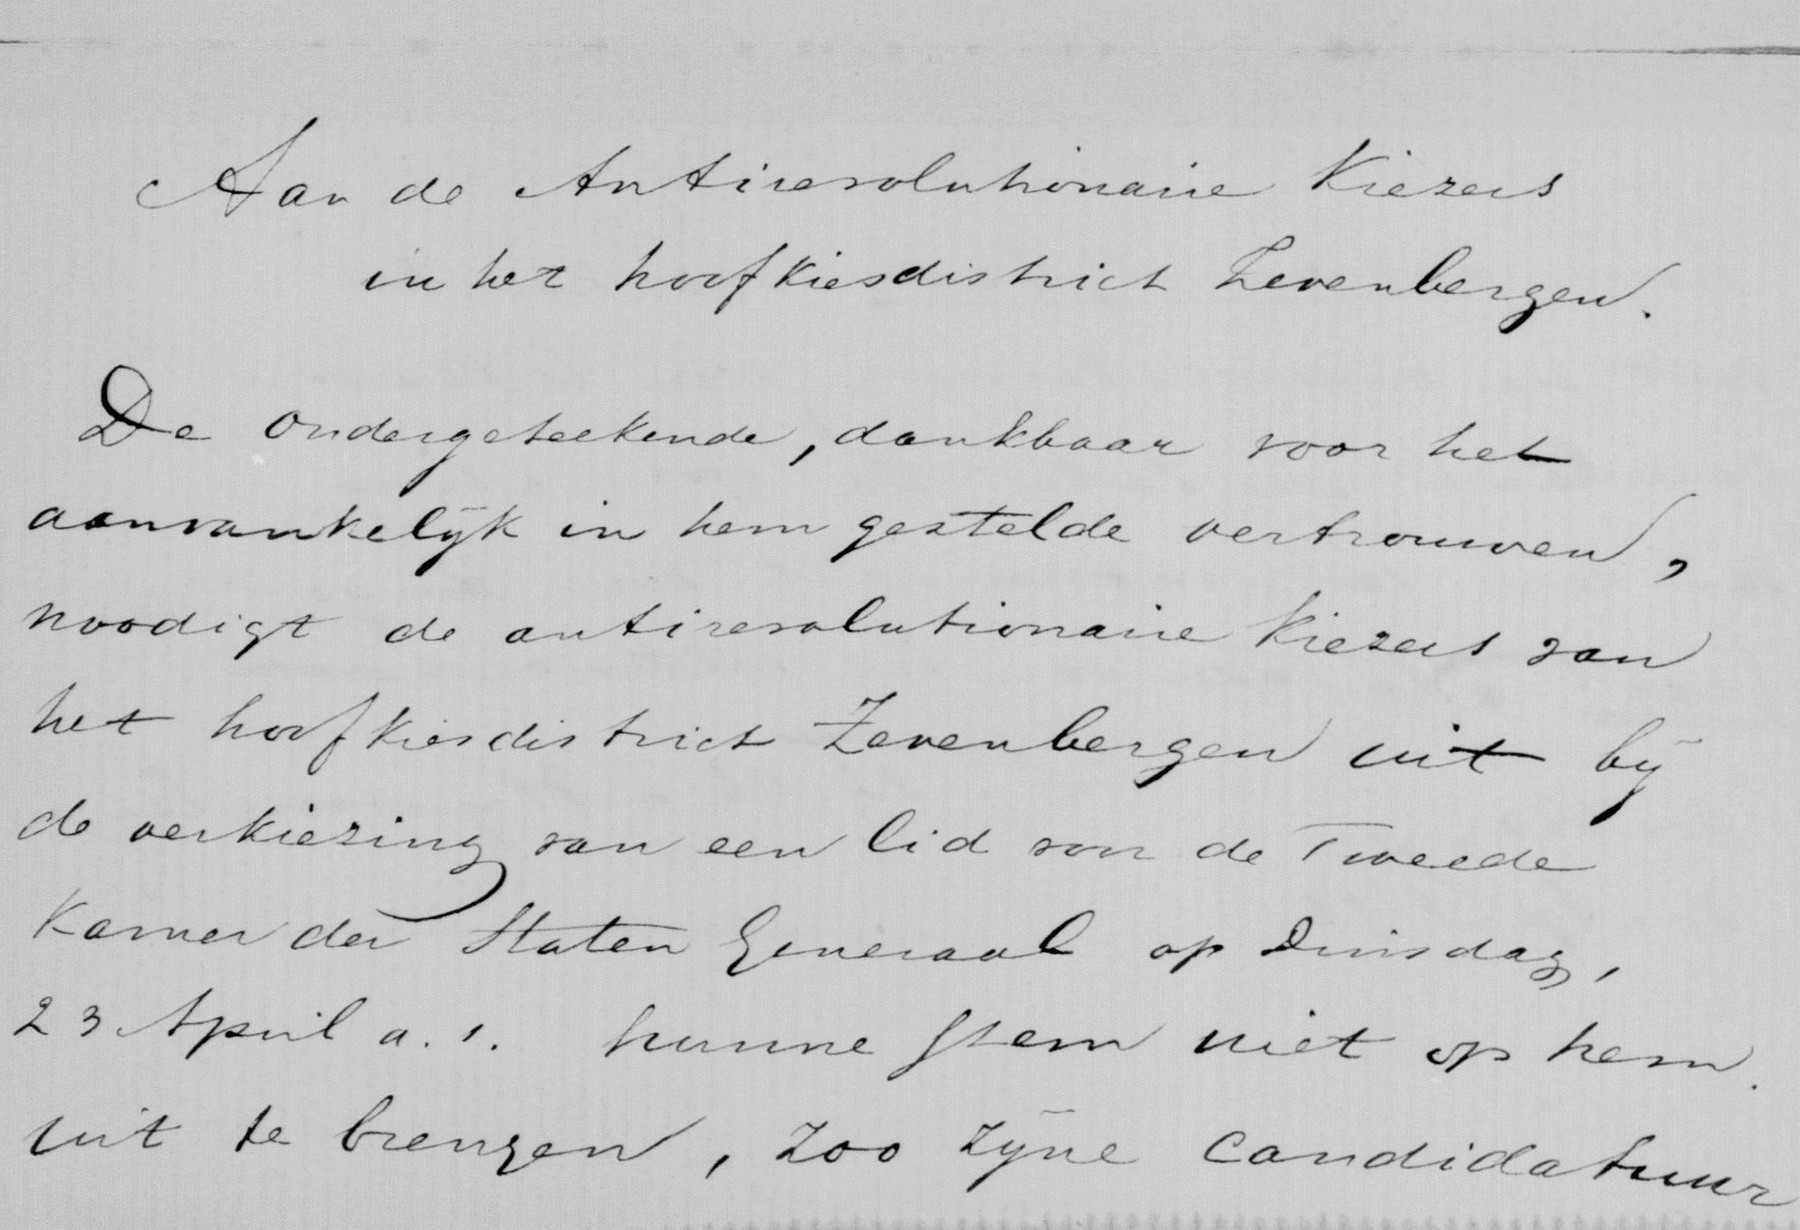 Aan de Antirevolutionaire Kiezers
in het hoofkiesdistrict Zevenbergen.
De ondergeteekende, dankbaar voor het
aanvankelijk in hem gestelde vertrouwen,
noodigt de antirevolutionaire Kiezers van
het hoofkiesdistrict Zevenbergen uit bij
de verkiezing van een lid van de Tweede
Kamer der Staten Generaal op Dinsdag,
23 April a. s. hunne stem niet op hem
uit te brengen, zoo zijne candidatuur